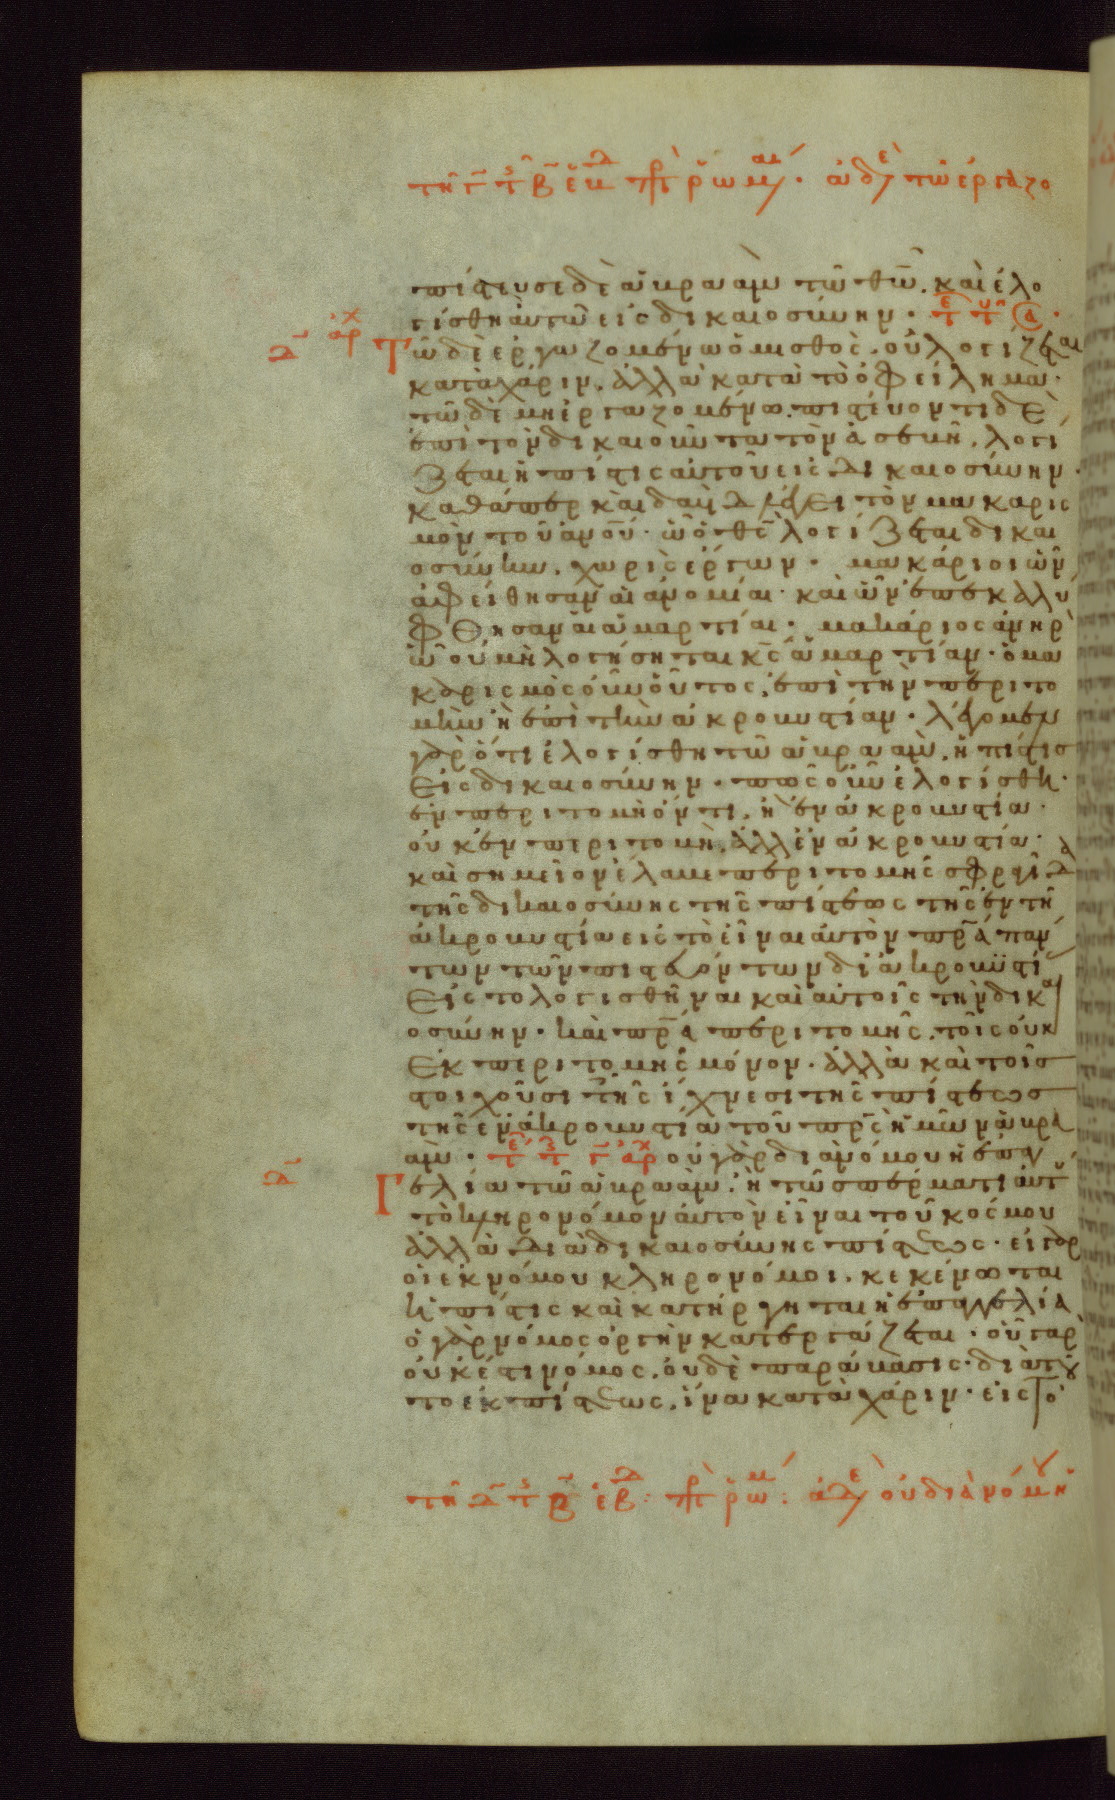 τῆ γ τ β ἑβδ πρ ῥωμαί· ἀδε τῷ ἐργαζο
πίστευσε δὲ ἀβραὰμ τῶ θω. καὶ ἐλο
γίσθη ἀυτῶ εἰς δικαιοσύνην·
ἀρχ Τῶ δὲ ἐργαζομένω ὁ μισθὸς. οὐ λογίζεται
κατὰ χάριν. ἀλλὰ κατὰ τὸ ὀφείλημα·
τῶ δὲ μὴ ἐργαζομένω. πιστέυοντι δὲ
ἐπὶ τὸν δικαιοῦντα τὸν ἀσεβῆ. λογί
ζεται ἡ πίστις αὐτοῦ εἰς δικαιοσύνην·
καθάπερ καὶ δαδ λέγει τὸν μακαρισ
μὸν τοῦ ἀνου· ὧ ὁ θς λογίζεται δικαι
οσύνην. χωρὶς ἔργων· μακάριοι ὧν
ἀφείθησαν αἱ ἀνομίαι· καὶ ὧν ἐπεκαλύ
φθησαν αἱ ἁμαρτίαι· μακάριος ἀνὴρ
ὧ οὐ μὴ λογήσηται κς ἁμαρτίαν· ὁ μα
καρισμὸς οὖν οὗτος. ἐπὶ τὴν περιτο
μὴν ἢ ἐπὶ τὴν ἀκροβυστίαν· λέγομεν
γὰρ ὅτι ἐλογίσθη τῶ ἀβραὰμ. ἡ πίστισ
εἰς δικαιοσύνην· πῶς οὖν ἐλογίσθη·
ἐν περιτομῆ ὄντι. ἢ ἐν ἀκροβυστία·
οὐκ ἐν περιτομῆ. ἀλλ ἐν ἀκροβυστία·
καὶ σημεῖον ἔλαβε περιτομῆς σφραγῖδα
τῆς δικαιοσύνης τῆς πίστεως τῆς ἐν τῆ
ἀκροβυστία εἰς τὸ εἶναι ἀυτὸν πρα πάν
των τῶν πιστευόντων δι ἀκροβυστί
εἰς το λογισθῆναι καὶ αὐτοῖς τὴν δικαι
οσύνην· καὶ πρα περιτομῆς. τοῖς οὐκ
ἐκ περιτομῆς μόνον· ἀλλὰ καὶ τοῖσ
στοιχοῦσι τῆς ἴχνεσι τῆς πίστεωσ
τῆς ἐν ἀκροβυστία τοῦ πρς ἡμῶν ἀβρα
ἀμ· ἀρχ οὐ γὰρ διὰ νόμου ἡ ἐπαγ
Γελία τῶ ἀβραὰμ. ἢ τῶ σπέρματι ἀυτ
τὸ κληρονόμον ἀυτὸν εἶναι τοῦ κόσμου
ἀλλὰ διὰ δικαιοσύνης πίστεως· εἰ γὰρ
οἱ ἐκ νόμου κληρονόμοι. κεκένωται
ἡ πίστις καὶ κατήργηται ἡ ἐπαγγελία
ὁ γὰρ νόμος ὀργὴν κατεργάζεται· οὗ γὰρ
οὐκ ἔστι νόμος. οὐδὲ παράβασις· διὰ τοῦ
το ἐκ πίστεως. ἵνα κατὰ χάριν· εἰς τὸ
τῆ δ τ β ἑβδ· πρ ῥωμ· ἀδε οὐ διὰ νόμου ἡ